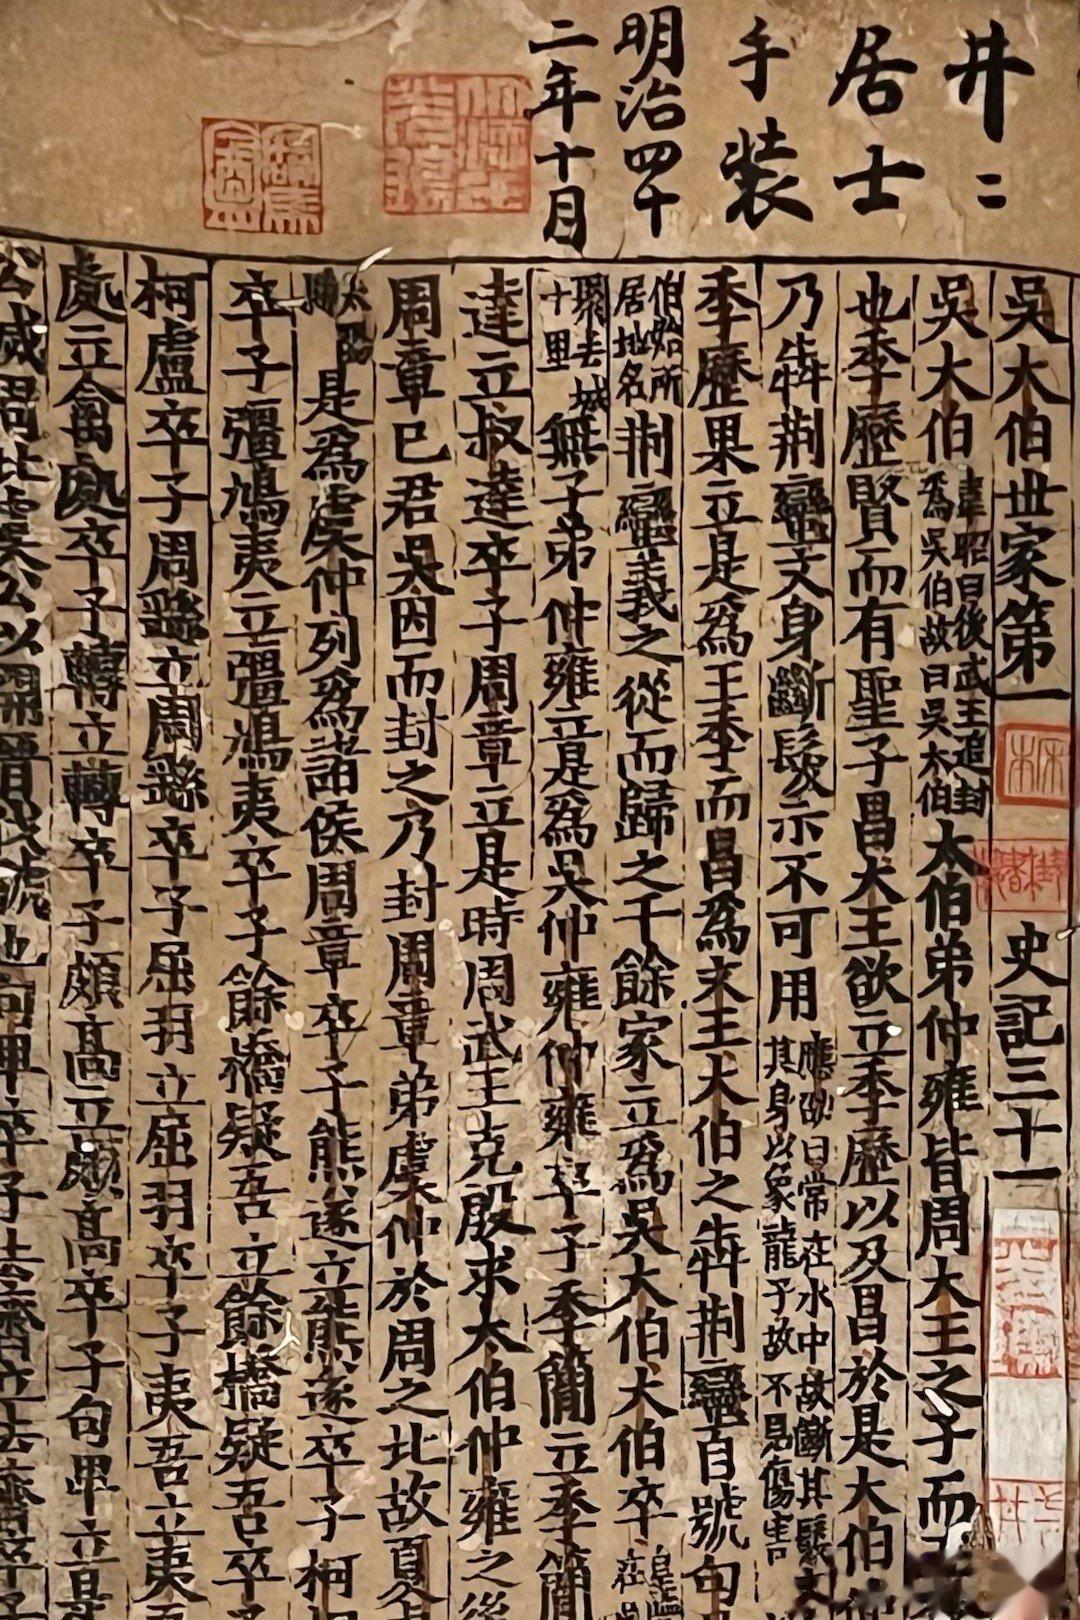 井二
居士
手装
明治四十
二年十月
吳太伯世家第一
史記三十一
吳大伯
韋昭曰後武王追封
爲吳伯故曰吳太伯
太伯弟仲雍皆周大王之子而
也季歷賢而有聖子昌大王欲立季歷以及昌於是大伯
乃犇荆蠻文身斷髮示不可用
應劭曰常在水中故斷其髮文
其身以象龍子故不見傷害
季歷果立是爲王季而昌爲文王大伯之犇荆蠻自號句
伯始所
居地名
荆蠻義之從而歸之千餘家立爲吳大伯大伯卒
聚去城
十里
無子弟仲雍立是爲吳仲雍仲雍卒子季簡立季簡
達立叔達卒子周章立是時周武王克殷求太伯仲雍之後
周章已君吳因而封之乃封周章弟虞仲於周之北故夏
是爲虞仲列爲諸侯周章卒子熊遂立熊遂卒子柯
卒子彊鳩夷立彊鳩夷卒子餘橋疑吾立餘橋疑吾卒
柯盧卒子周繇立周繇卒子屈羽立屈羽卒子夷吾立夷
處立禽處卒子轉立轉卒子頗高立頗高卒子句卑立是